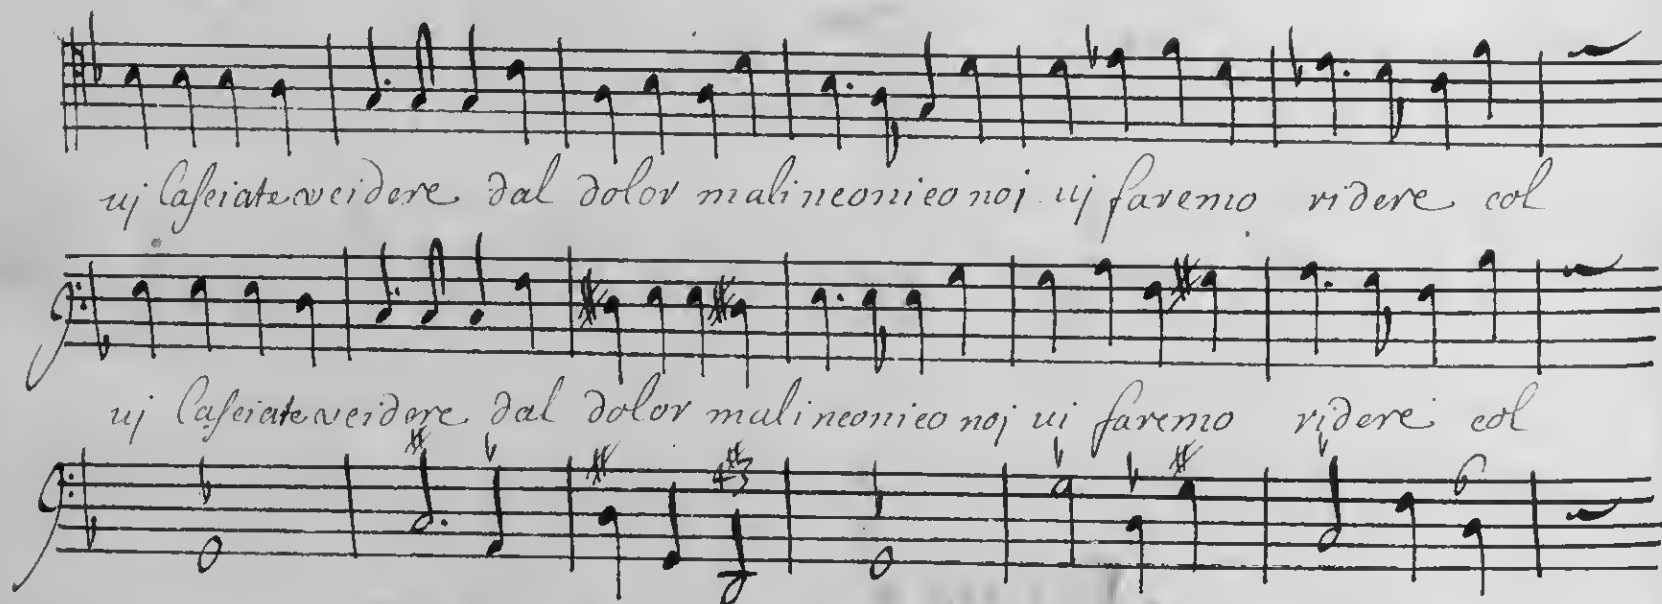 uj lasciate vcidere dal dolor malinconico noi uj faremo ridere col
uj lasciate vcidere dal dolor malinconico noj ui faremo ridere col
43
6